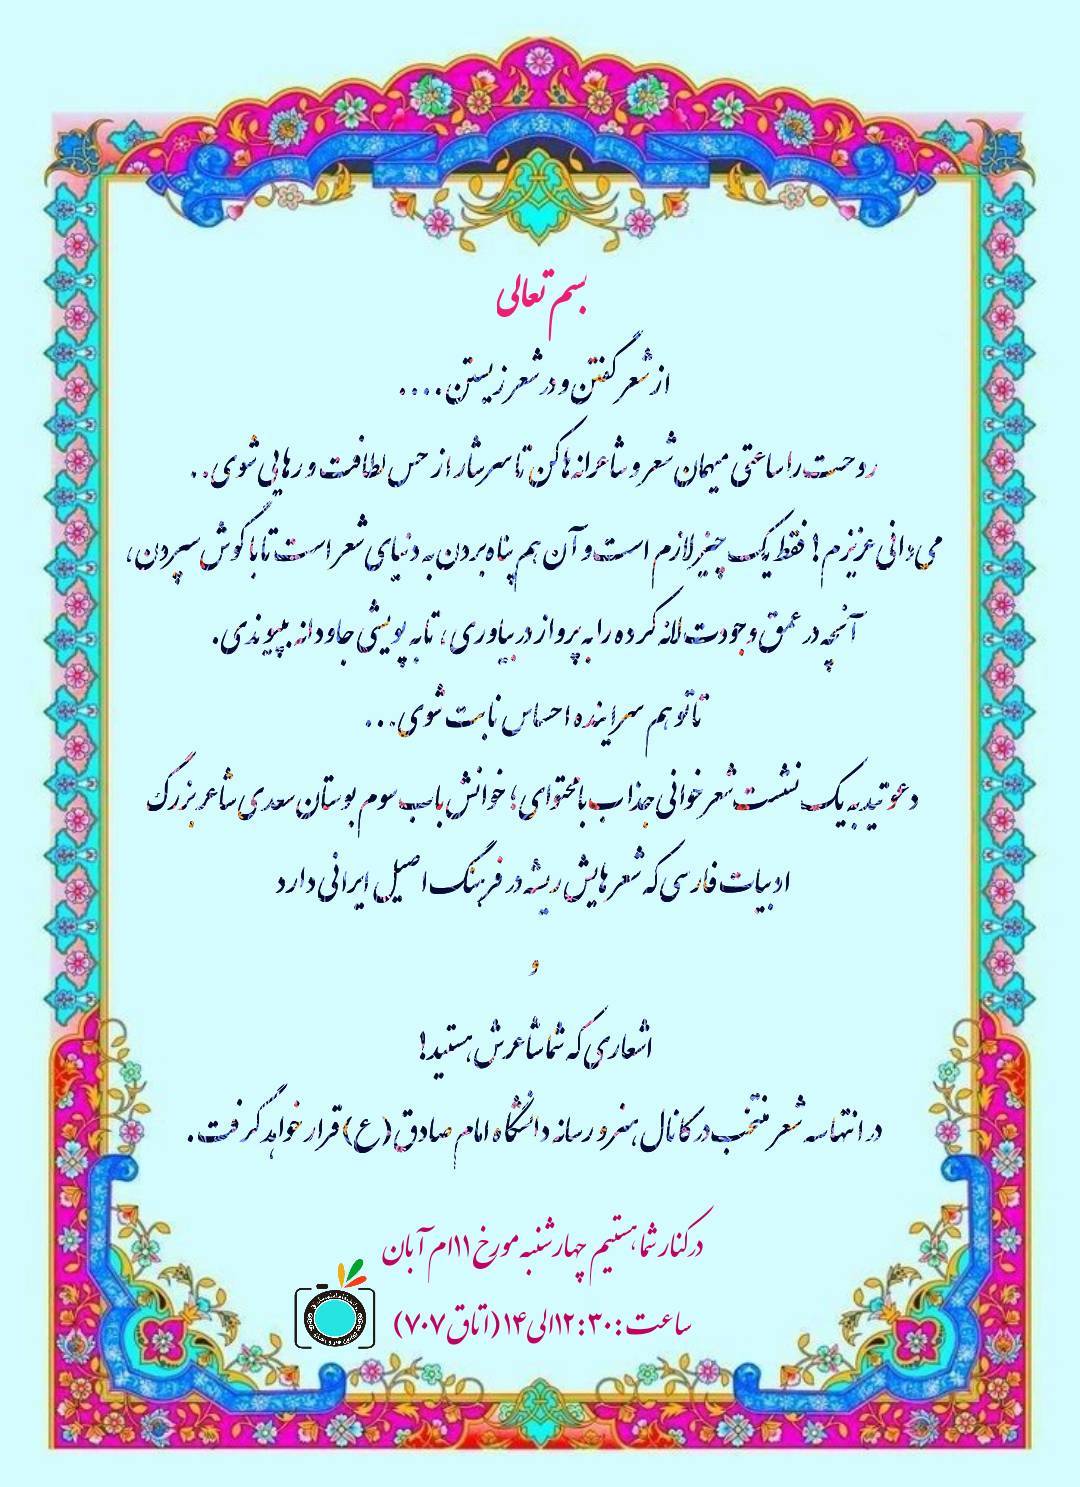 بسم تعالی
از شعر گفتن و در شعر زیستن....
روحت را ساعتی میهمان شعر و شاعرانه ها کن تا سرشار از حس لطافت و رهایی شوی..
می دانی عزیزم! فقط یک چیز لازم است و آن هم پناه بردن به دنیای شعر است تا با گوش سپردن،
آنچه در عمق وجودت لانه کرده را به پرواز در بیاوری، تا به پویشی جاودانه بپیوندی.
تا تو هم سراینده احساس نابت شوی...
دعوتید به یک نشست شعر خوانی جذاب با محتوای؛ خوانش باب سوم بوستان سعدی شاعر بزرگ
ادبیات فارسی که شعرهایش ریشه در فرهنگ اصیل ایرانی دارد
و
اشعاری که شما شاعرش هستید!
در انتها سه شعر منتخب در کانال هنر و رسانه دانشگاه امام صادق (ع) قرار خواهد گرفت.
در کنار شما هستیم چهارشنبه مورخ ۱۱ام آبان
ساعت: ۱۲:۳۰ الی ۱۴ (اتاق ۷۰۷)